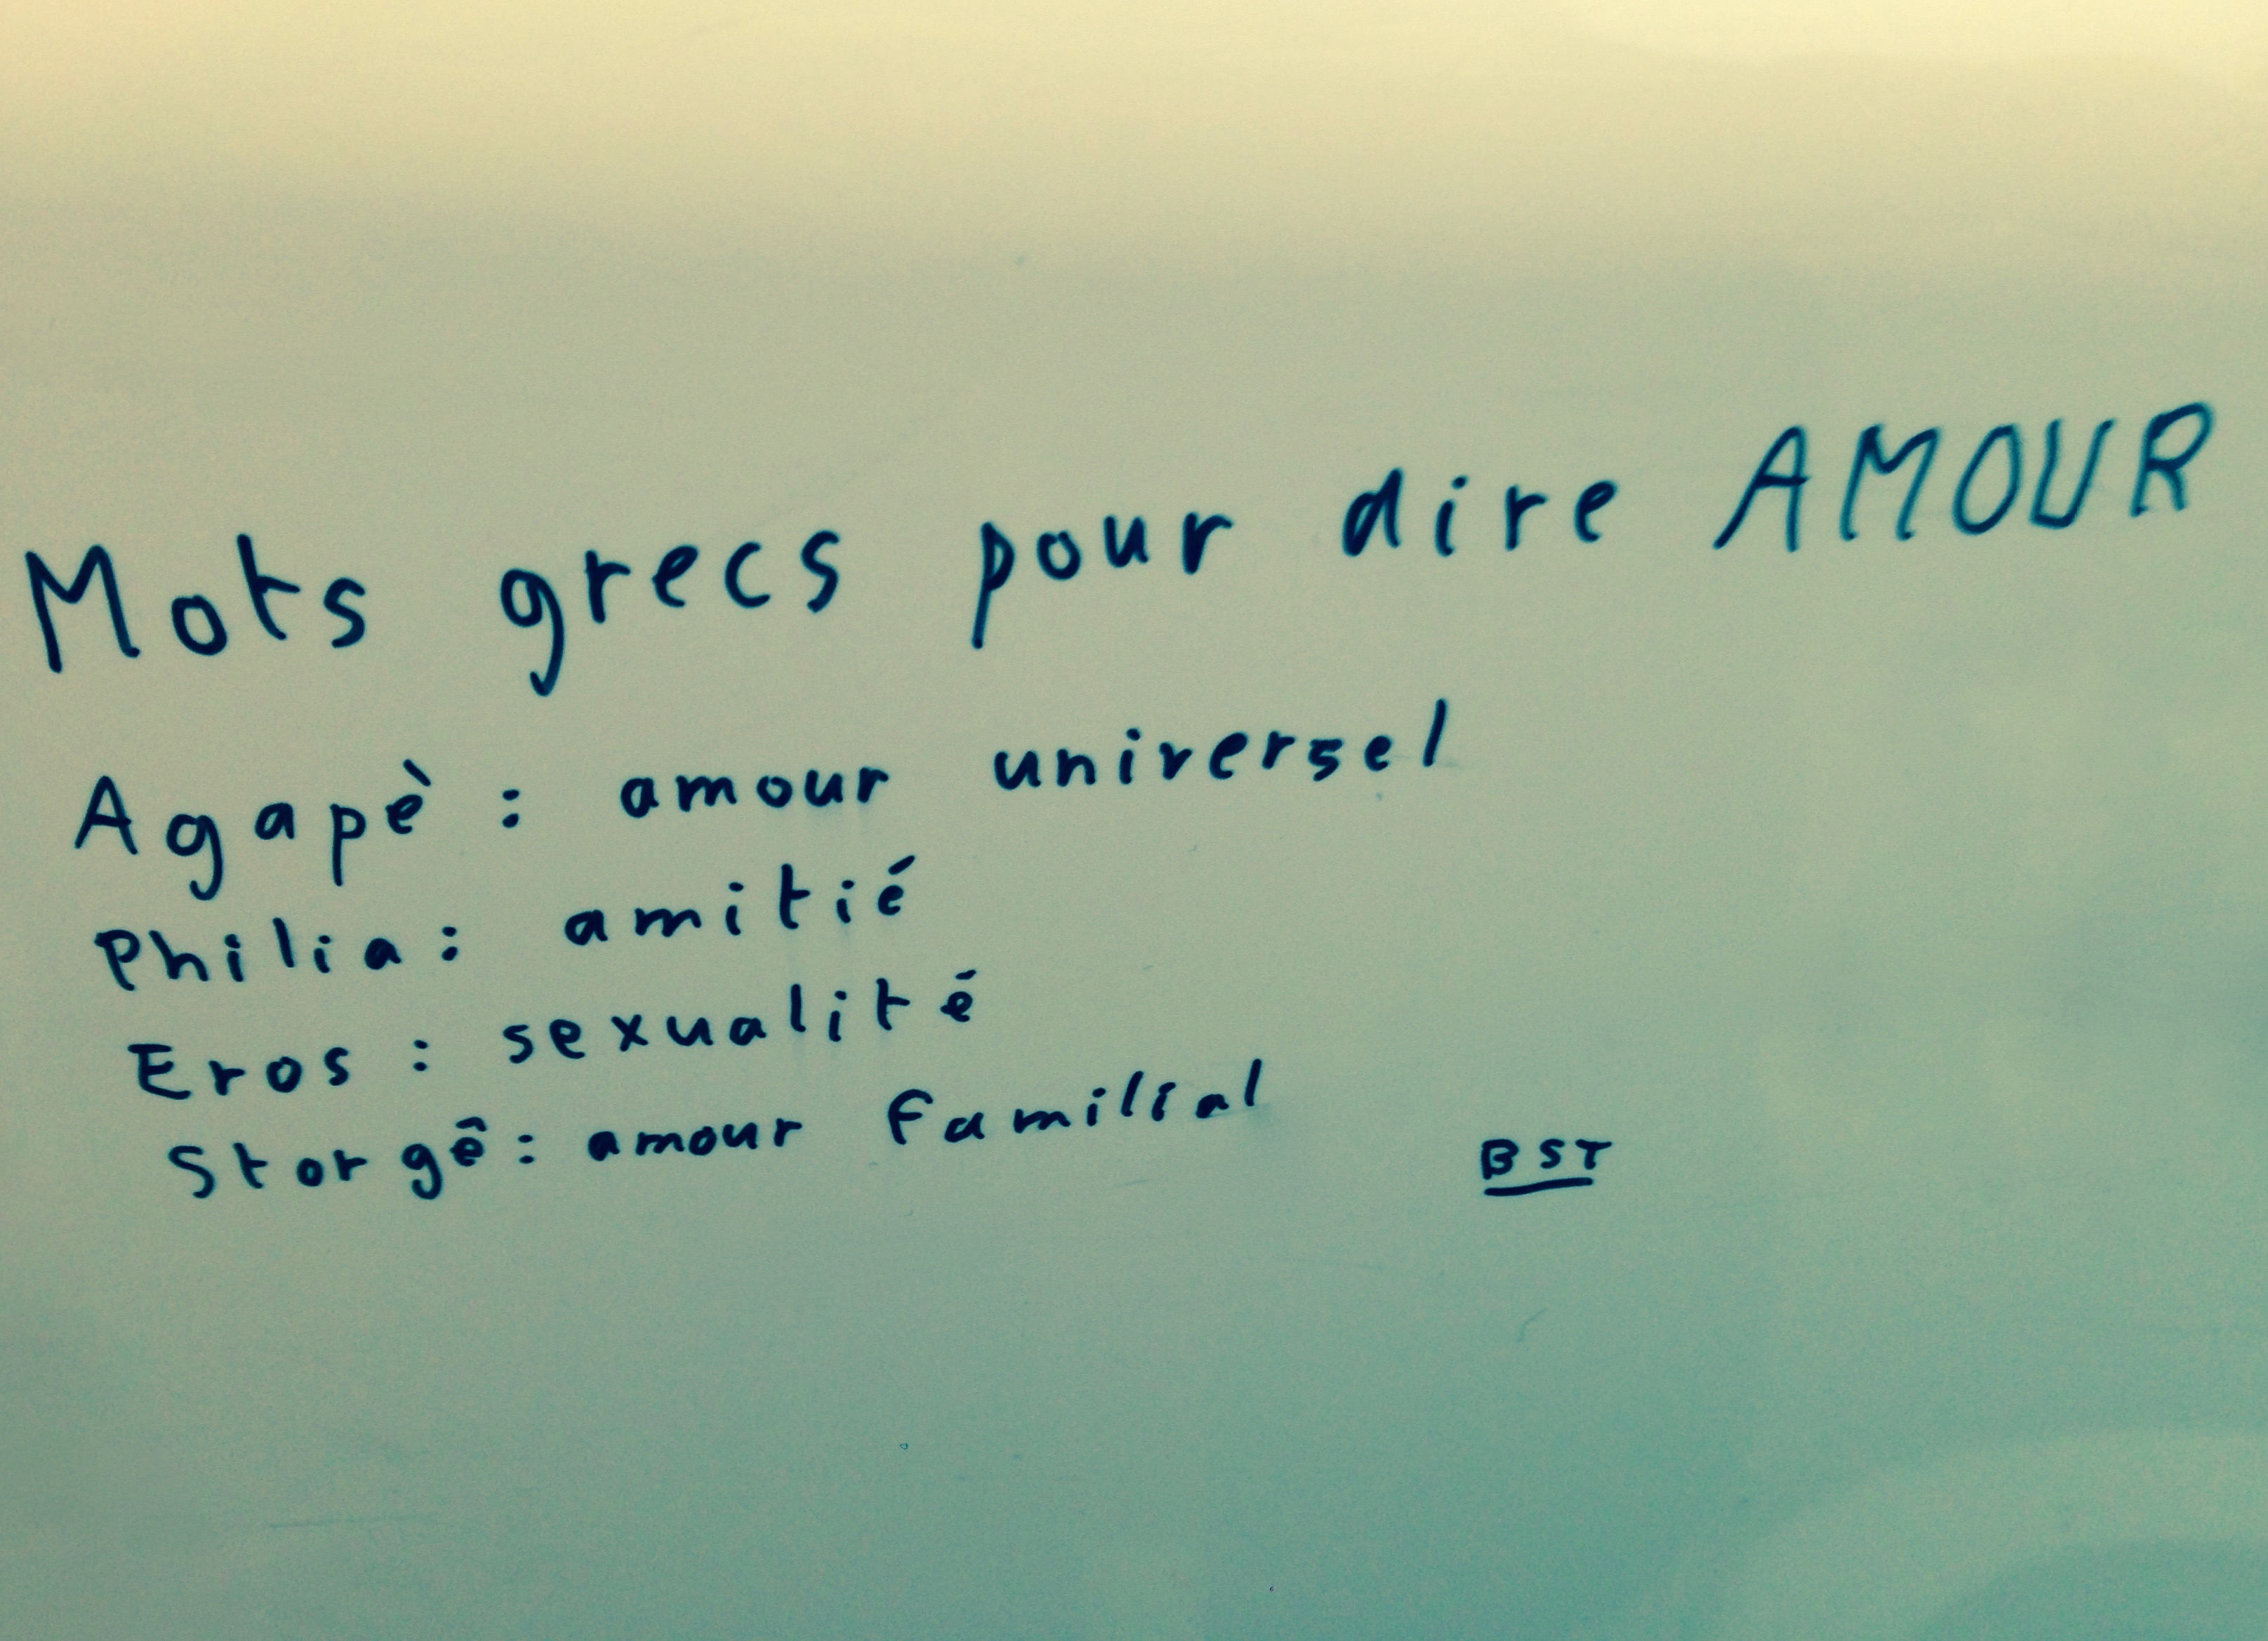 Mots grecs pour dire AMOUR
Agapè : amour universel
Philia : amitié
Eros : sexualité
Storgê : amour familial
BST